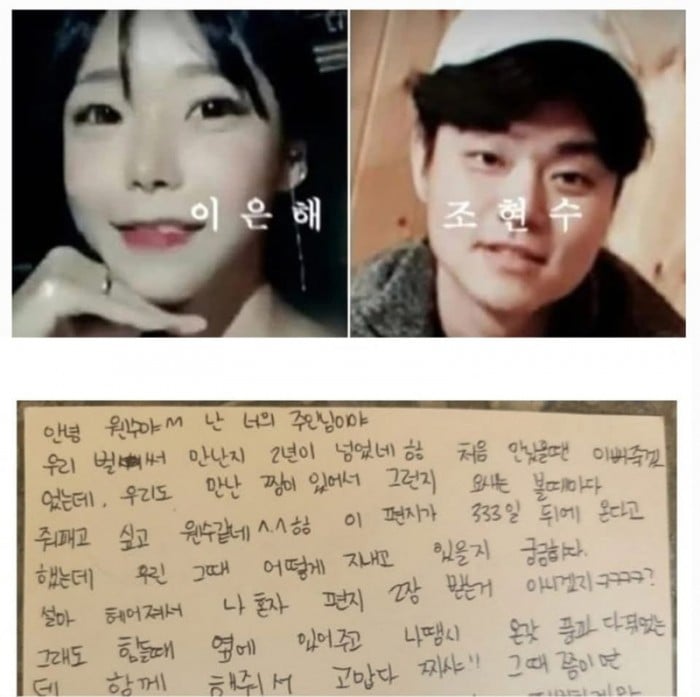 이은해
조현수
안녕 원수야~ 난 너의 주인님이야
우리 벌써 만난지 2년이 넘었네 항 처음 만났을땐 이뻐죽겠
었는데, 우리도 만난 짬이 있어서 그런지 요새는 볼때마다
줘패고 싶고 원수같네^^항 이 편지가 333일 뒤에 온다고
했는데 우린 그때 어떻게 지내고 있을지 궁금하다.
설마 헤어져서 나 혼자 편지 2장 받는거 아니겠지ㅋㅋㅋㅋ?
그래도 힘들때 옆에 있어주고 나땜시 온갖 풍파 다
데 함께 해줘서 고맙다 찌샤!! 그때 쯤이면